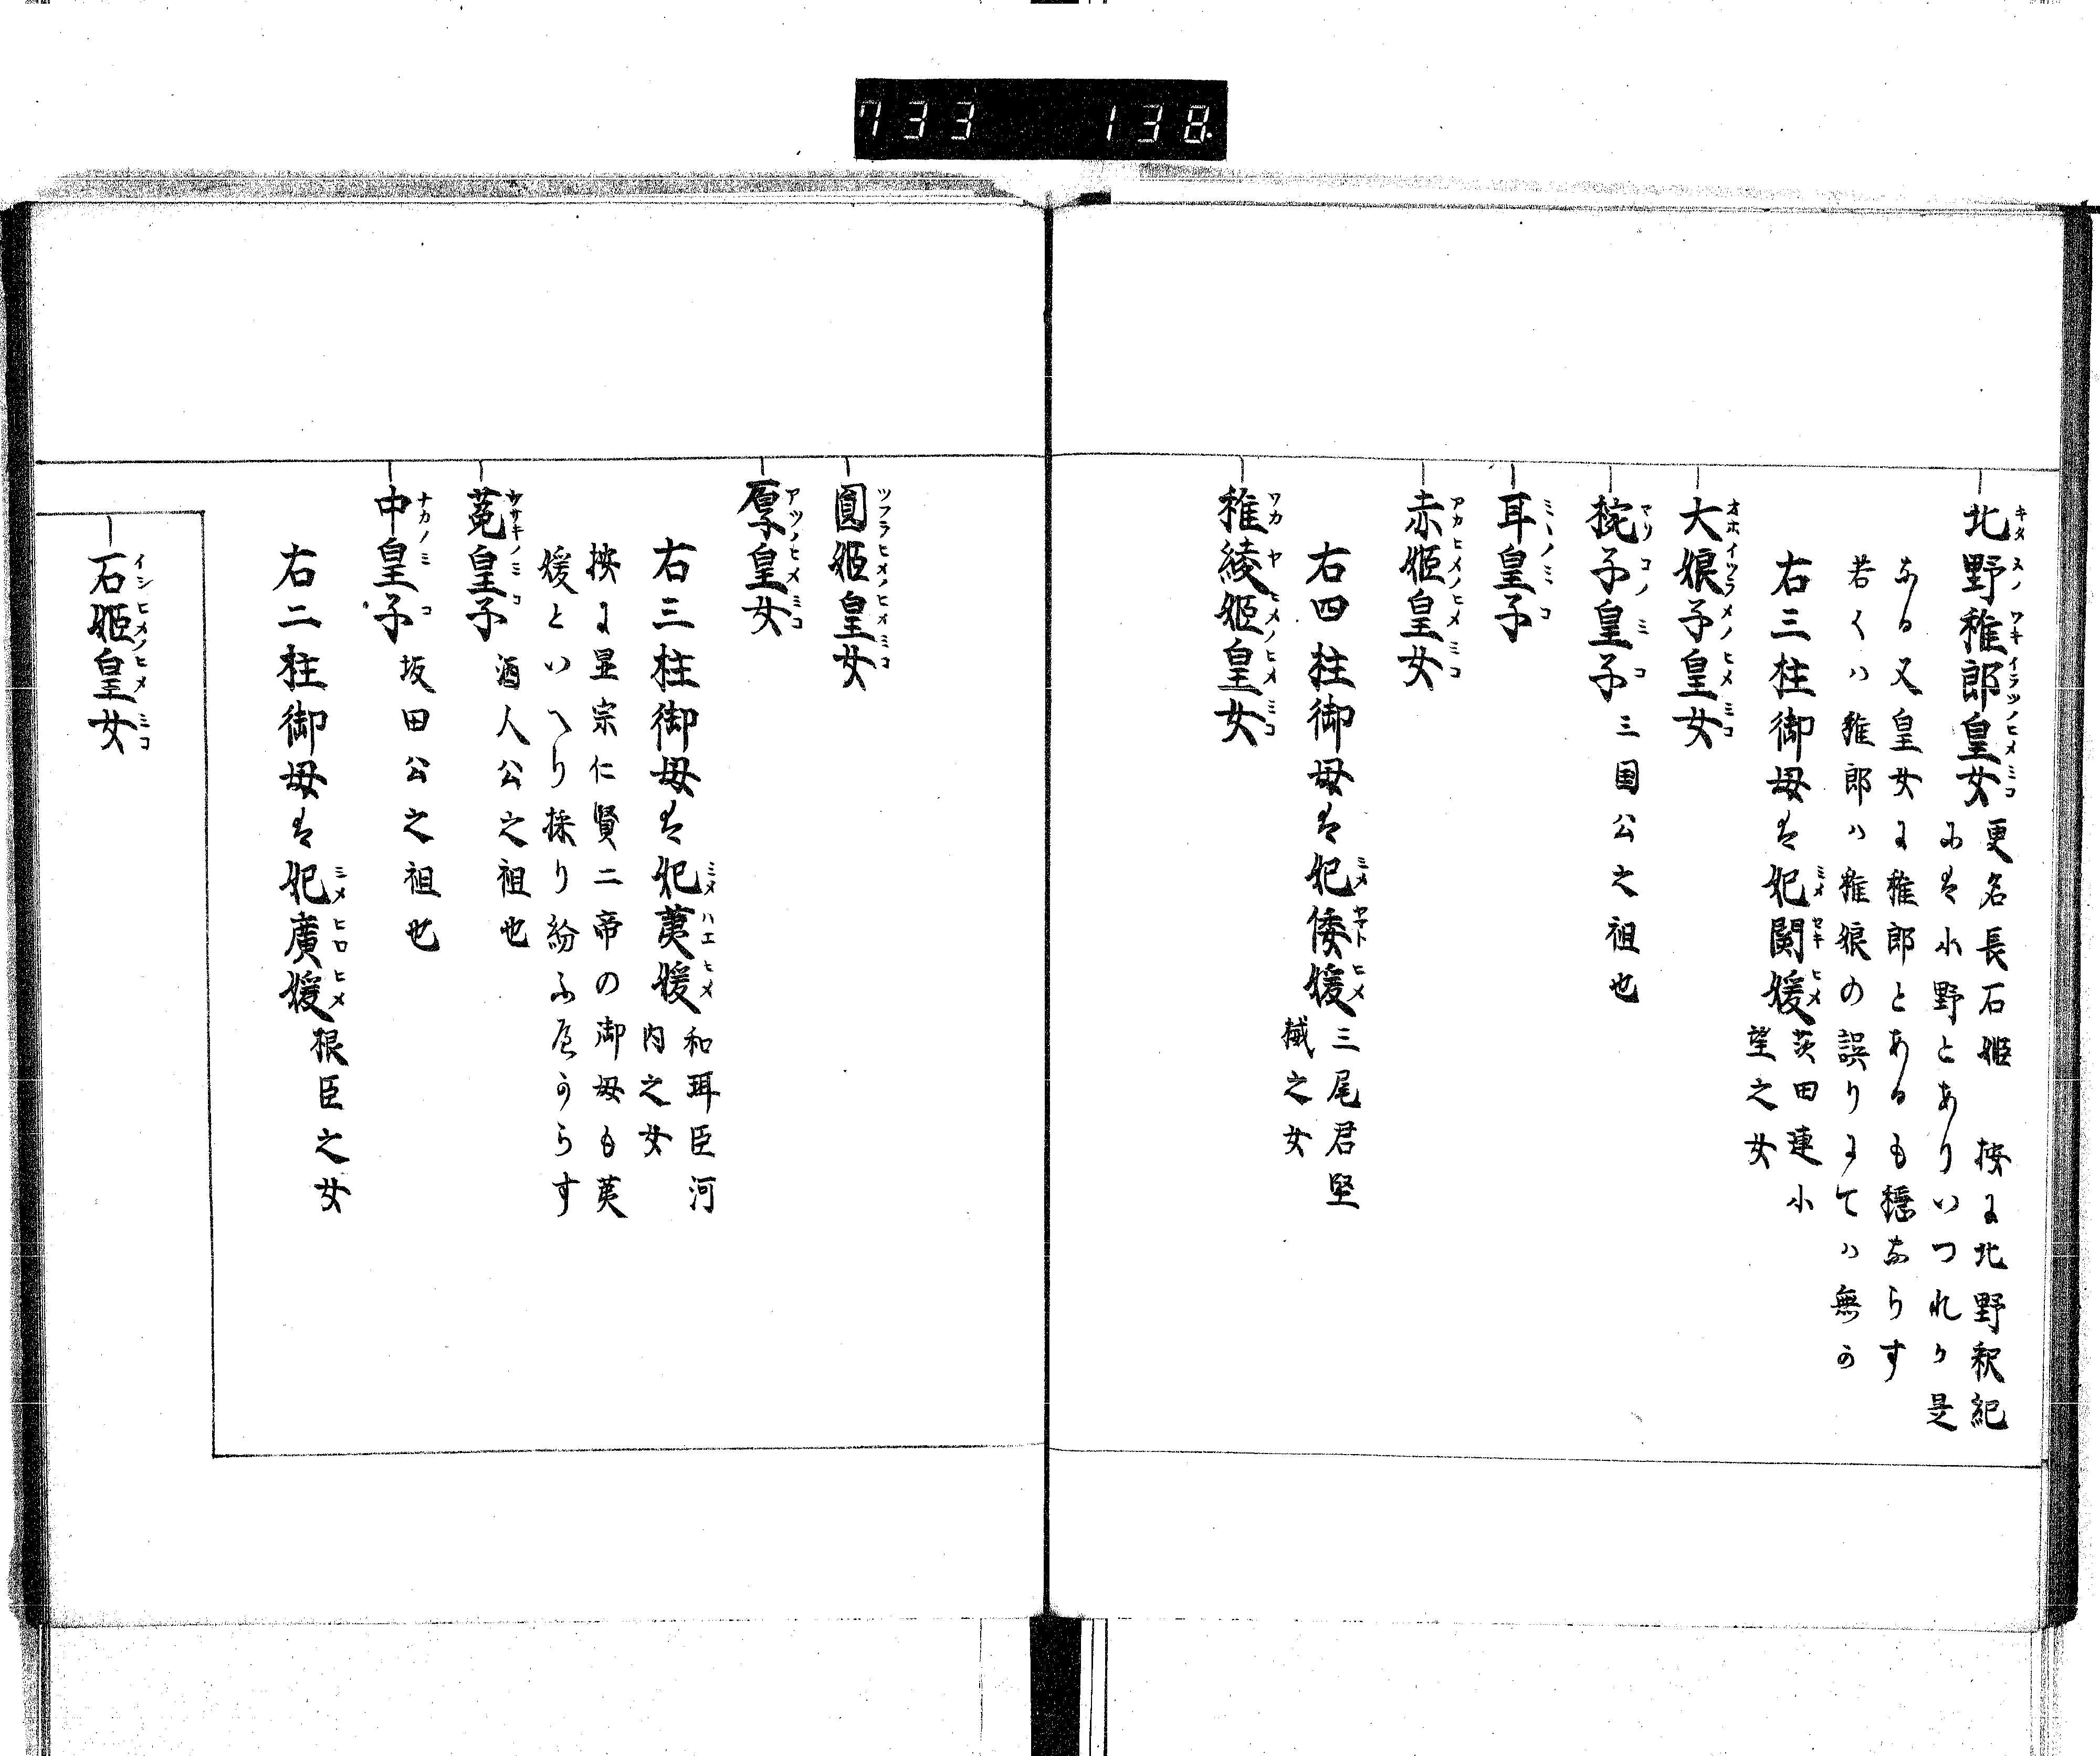 733 138
北野稚郎皇女 更名長石姫 按ﾆ北野釈紀
にハ小野とありいつれか是
なる又皇女に稚郎とあるも穏ならす
若くハ稚郎ハ稚娘の誤りにてハ無か
右三柱御母ハ妃関媛 茨田連小
望之女
大娘子皇女
椀子皇子 三国公之祖也
耳皇子
赤姫皇女
右四柱御母ハ妃倭媛 三尾君堅
楲之女
稚綾姫皇女
圓姫皇女
厚皇女
右三柱御母ハ妃荑媛 和珥臣河
内之女
按に显宗仁賢二帝の御母も荑
媛といへり採り紛ふへからす
菟皇子 酒人公之祖也
中皇子 坂田公之祖也
右二柱御母ハ妃廣媛 根臣之女
石姫皇女